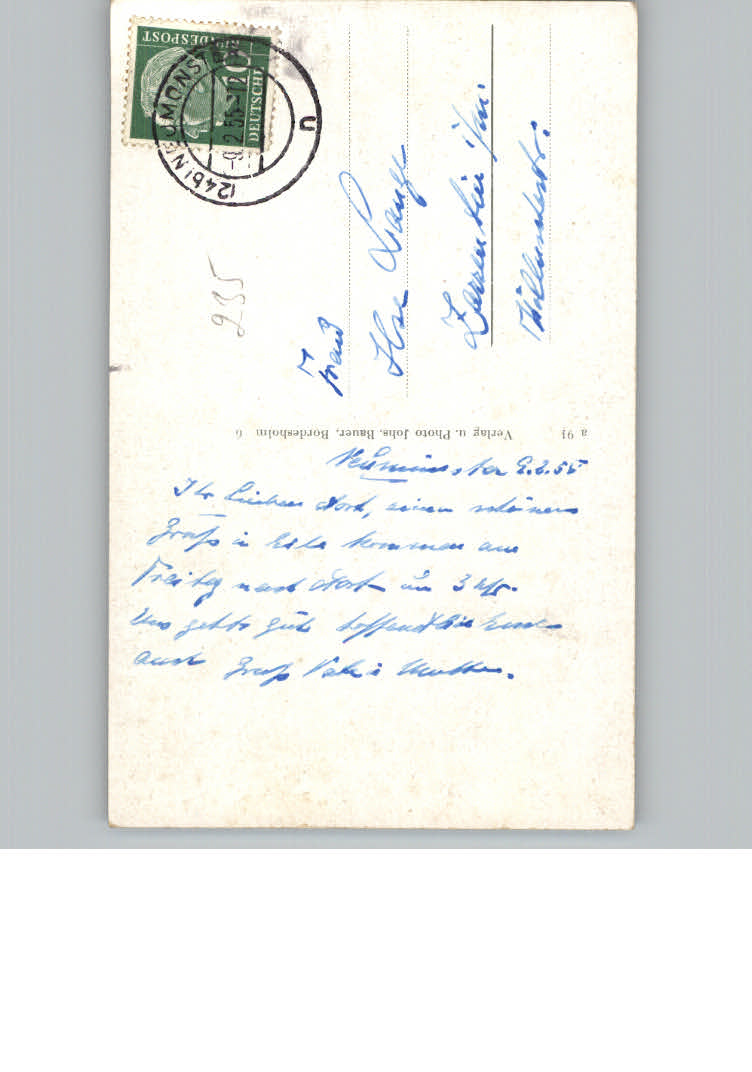 DEUTSCHE
BUNDESPOST
10
(24b) NEUMÜNSTER
-9.2.55-12
u
235
Frau
Ilse Lange
Zarrentin i/M.
a 91 Verlag u. Photo Johs. Bauer, Bordesholm 6
Neumünster 9.2.55
Ihr Lieben dort, einen schönen
Gruß in Eile kommen am
Freitag nach dort um 3 Uhr.
Uns geht's gut hoffentlich Euch
auch Gruß Vati u Mutter.